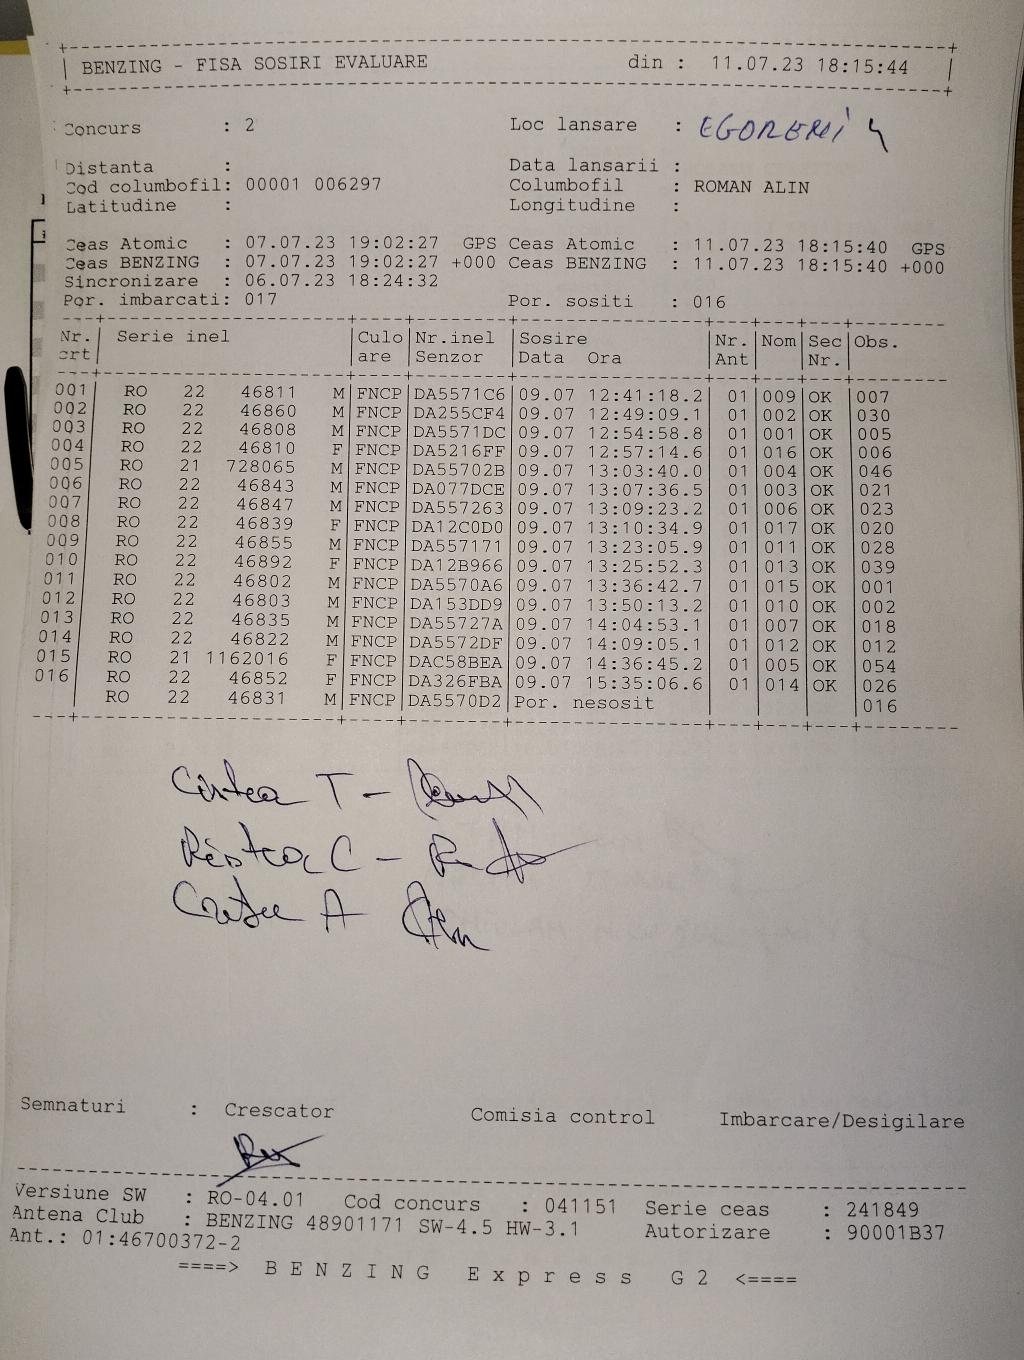 BENZING - FISA SOSIRI EVALUARE din : 11.07.23 18:15:44
Concurs : 2 Loc lansare :
Distanta : Data lansarii :
Cod columbofil: 00001 006297 Columbofil : ROMAN ALIN
Latitudine : Longitudine :
Ceas Atomic : 07.07.23 19:02:27 GPS Ceas Atomic : 11.07.23 18:15:40 GPS
Ceas BENZING : 07.07.23 19:02:27 +000 Ceas BENZING : 11.07.23 18:15:40 +000
Sincronizare : 06.07.23 18:24:32
Por. imbarcati: 017 Por. sositi : 016
Nr. Serie inel Culo Nr.inel Sosire Nr. Nom Sec Obs.
crt are Senzor Data Ora Ant Nr.
001 RO 22 46811 M FNCP DA5571C6 09.07 12:41:18.2 01 009 OK 007
002 RO 22 46860 M FNCP DA255CF4 09.07 12:49:09.1 01 002 OK 030
003 RO 22 46808 M FNCP DA5571DC 09.07 12:54:58.8 01 001 OK 005
004 RO 22 46810 F FNCP DA5216FF 09.07 12:57:14.6 01 016 OK 006
005 RO 21 728065 M FNCP DA55702B 09.07 13:03:40.0 01 004 OK 046
006 RO 22 46843 M FNCP DA077DCE 09.07 13:07:36.5 01 003 OK 021
007 RO 22 46847 M FNCP DA557263 09.07 13:09:23.2 01 006 OK 023
008 RO 22 46839 F FNCP DA12C0D0 09.07 13:10:34.9 01 017 OK 020
009 RO 22 46855 M FNCP DA557171 09.07 13:23:05.9 01 011 OK 028
010 RO 22 46892 F FNCP DA12B966 09.07 13:25:52.3 01 013 OK 039
011 RO 22 46802 M FNCP DA5570A6 09.07 13:36:42.7 01 015 OK 001
012 RO 22 46803 M FNCP DA153DD9 09.07 13:50:13.2 01 010 OK 002
013 RO 22 46835 M FNCP DA55727A 09.07 14:04:53.1 01 007 OK 018
014 RO 22 46822 M FNCP DA5572DF 09.07 14:09:05.1 01 012 OK 012
015 RO 21 1162016 F FNCP DAC58BEA 09.07 14:36:45.2 01 005 OK 054
016 RO 22 46852 F FNCP DA326FBA 09.07 15:35:06.6 01 014 OK 026
RO 22 46831 M FNCP DA5570D2 Por. nesosit 016
Semnaturi : Crescator Comisia control Imbarcare/Desigilare
Versiune SW : RO-04.01 Cod concurs : 041151 Serie ceas : 241849
Antena Club : BENZING 48901171 SW-4.5 HW-3.1 Autorizare : 90001B37
Ant.: 01:46700372-2
====> BENZING Express G2 <====